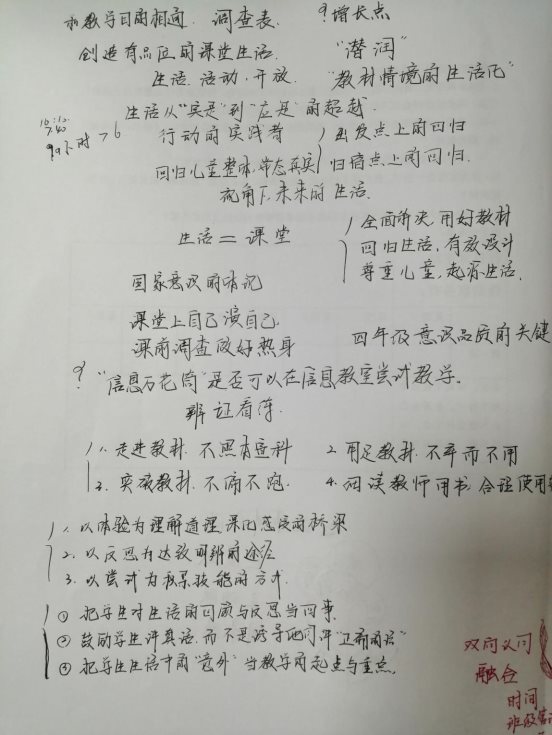 和教学目的相通. 调查表. ?增长点
创造有品位的课堂生活. "潜润"
生活. 活动. 开放. "教材情境的生活化"
生活从"实是"到"应是"的超越.
行动的实践者 出发点上的回归
回归儿童整体,常态真实 归宿点上的回归.
视角下,未来的生活.
生活 = 课堂 全面解决,用好教材
回归生活,有效设计
国家意识的 尊重儿童,起源生活.
课堂上自己演自己.
课前调查做好热身 四年级意识品质的关键
? "信息万花筒"是否可以在信息教室尝试教学.
辨证看待.
1. 走进教材.不照本宣科 2. 用足教材.不弃而不用
3. 突破教材.不偏不跑. 4. 阅读教师用书,合理使用
1. 以体验为理解道理,深化感受的桥梁
2. 以反思为达致明辨的途径
3. 以尝试为积累技能的方式.
① 把学生对生活的回顾与反思当回事.
② 鼓励学生讲真话,而不是诱导他们讲"正确的话"
③ 把学生生活中的"意外"当教学的起点与重点.
双向叉门
融合
时间
班级